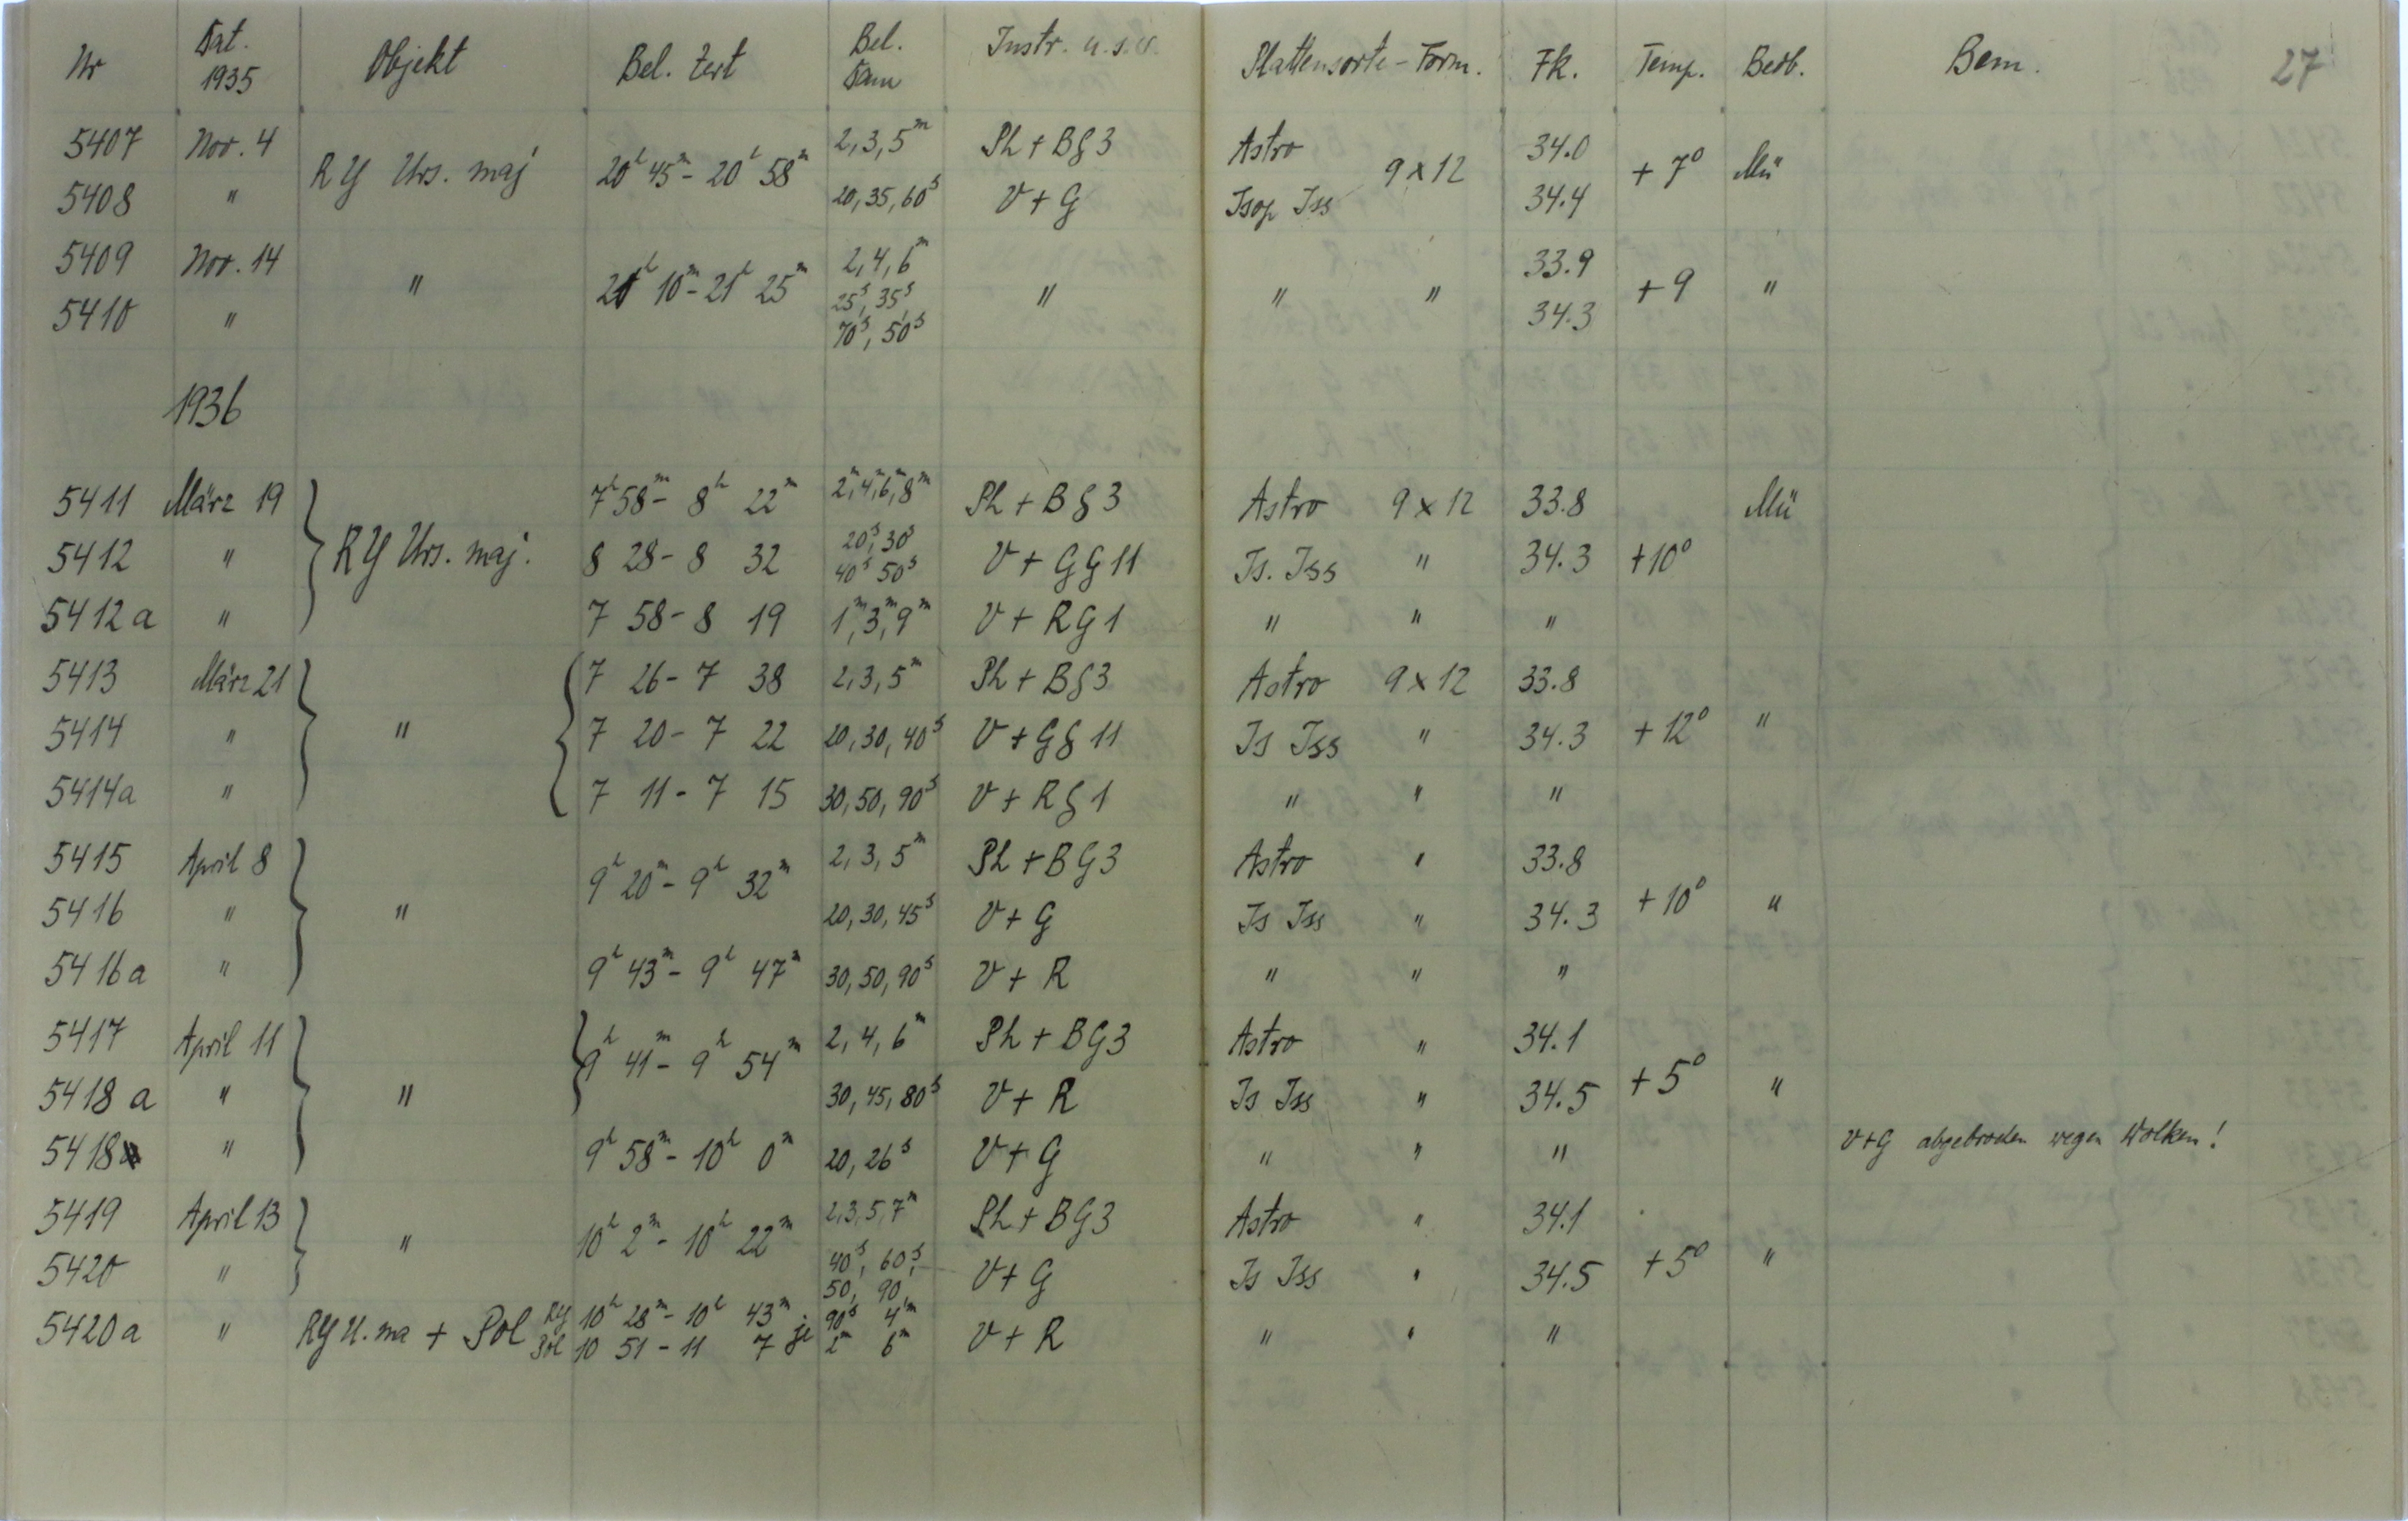 Nr Dat. 1935 Objekt Bel. Zeit Bel. Dau Instr. u.s.w. Plattensorte - Form. Fk. Temp. Beob. Bem. 27
5407 Nov. 4 RY Urs. maj 20h 45m - 20h 58m 2, 3, 5m Ph + BG3 Astro 9 x 12 34.0 + 7° Mü
5408 " 20, 35, 60s V + G Isop Iss 34.4
5409 Nov. 14 " 21h 10m - 21h 25m 2, 4, 6m " " " 33.9 + 9 "
5410 " 25s, 35s, 70s, 50s 34.3
1936
5411 März 19 RY Urs. maj. 7h 58m - 8h 22m 2m, 4m, 6m, 8m Ph + BG3 Astro 9 x 12 33.8 Mü
5412 " 8 28 - 8 32 20s, 30s 40s 50s V + GG 11 Is. Iss " 34.3 +10°
5412a " 7 58 - 8 19 1m, 3m, 9m V + RG 1 " " "
5413 März 21 " 7 26 - 7 38 2, 3, 5m Ph + BG3 Astro 9 x 12 33.8
5414 " 7 20 - 7 22 20, 30, 40s V + GG 11 Is Iss " 34.3 + 12° "
5414a " 7 11 - 7 15 30, 50, 90s V + RG 1 " " "
5415 April 8 " 9h 20m - 9h 32m 2, 3, 5m Ph + BG3 Astro " 33.8
5416 " 20, 30, 45s V + G Is Iss " 34.3 + 10° "
5416a " 9h 43m - 9h 47m 30, 50, 90s V + R " " "
5417 April 11 " 9h 41m - 9h 54m 2, 4, 6m Ph + BG3 Astro " 34.1
5418 a " 30, 45, 80s V + R Is Iss " 34.5 + 5° "
5418 " 9h 58m - 10h 0m 20, 26s V + G " " " V+G abgebrochen wegen Wolken!
5419 April 13 " 10h 2m - 10h 22m 2, 3, 5, 7m Ph + BG3 Astro " 34.1
5420 " 40s, 60s, 50, 90 V + G Is Iss " 34.5 + 5° "
5420a " RY U. ma + Pol RY 10h 28m - 10h 43m Pol 10 51 - 11 7 je 90s 4m 2m 6m V + R " " "